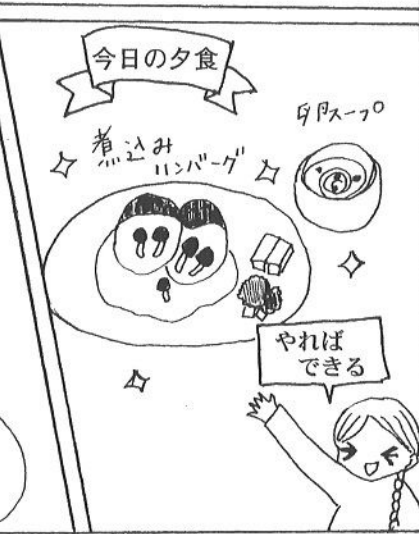 今日の夕食
卵スープ
煮込み
ハンバーグ
やれば
できる